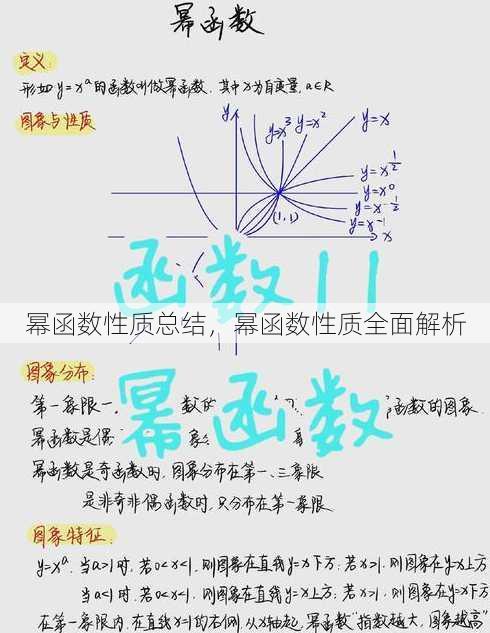 幂函数
定义:
形如y=xᵃ的函数叫做幂函数.其中x为自变量,a∈R
图象与性质
y
y=x³ y=x² y=x
y=x^{1/2}
y=x⁰
(1,1) y=x^{-1/2}
y=x⁻¹
x
函数11
幂函数性质总结，幂函数性质全面解析
图象分布:
幂函数
第一象限一 数的 函数的图象.
幂函数是偶 象
幂函数是奇函数时,图象分布在第一、三象限
是非奇非偶函数时,只分布在第一象限
图象特征.
y=xᵃ.当a>1时,若0<x<1.则图象在直线y=x下方;若x>1.则图象在y=x上方
当a<1时,若0<x<1.则图象在直线y=x上方;若x>1.则图象在y=x下方
在第一象限内,在直线x=1的右侧,从x轴起,幂函数"指数越大,图象越高"